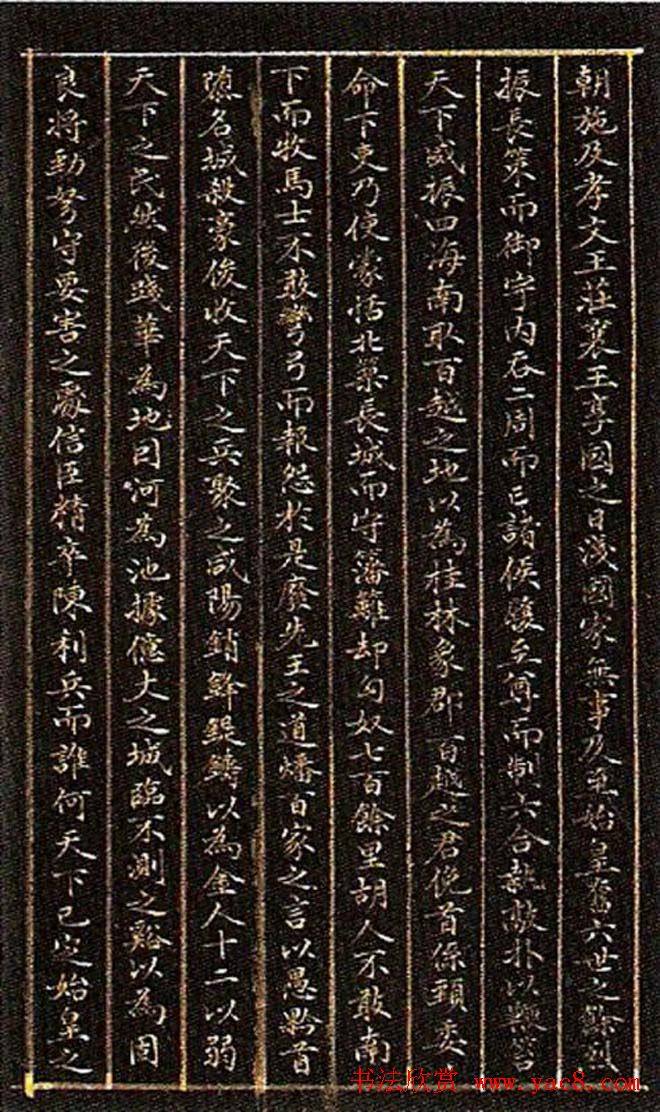 朝施及孝文王莊襄王享國之日淺國家無事及至始皇奮六世之餘烈
振長策而御宇內吞二周而亡諸侯履至尊而制六合執敲朴以鞭笞
天下威振四海南取百越之地以為桂林象郡百越之君俛首係頸委
命下吏乃使蒙恬北築長城而守藩籬却匈奴七百餘里胡人不敢南
下而牧馬士不敢彎弓而報怨於是廢先王之道燔百家之言以愚黔首
隳名城殺豪俊收天下之兵聚之咸陽銷鋒鍉鑄以為金人十二以弱
天下之民然後踐華為城因河為池據億丈之城臨不測之谿以為固
良將勁弩守要害之處信臣精卒陳利兵而誰何天下已定始皇之
书法欣赏 www.yac8.com